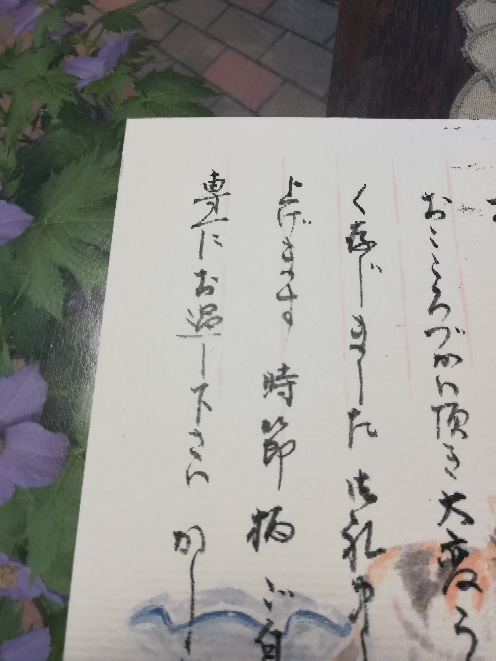 おこころづかい頂き大変う
く存じました 御礼申し
上げます 時節柄 ご自
専一にお過し下さい かし